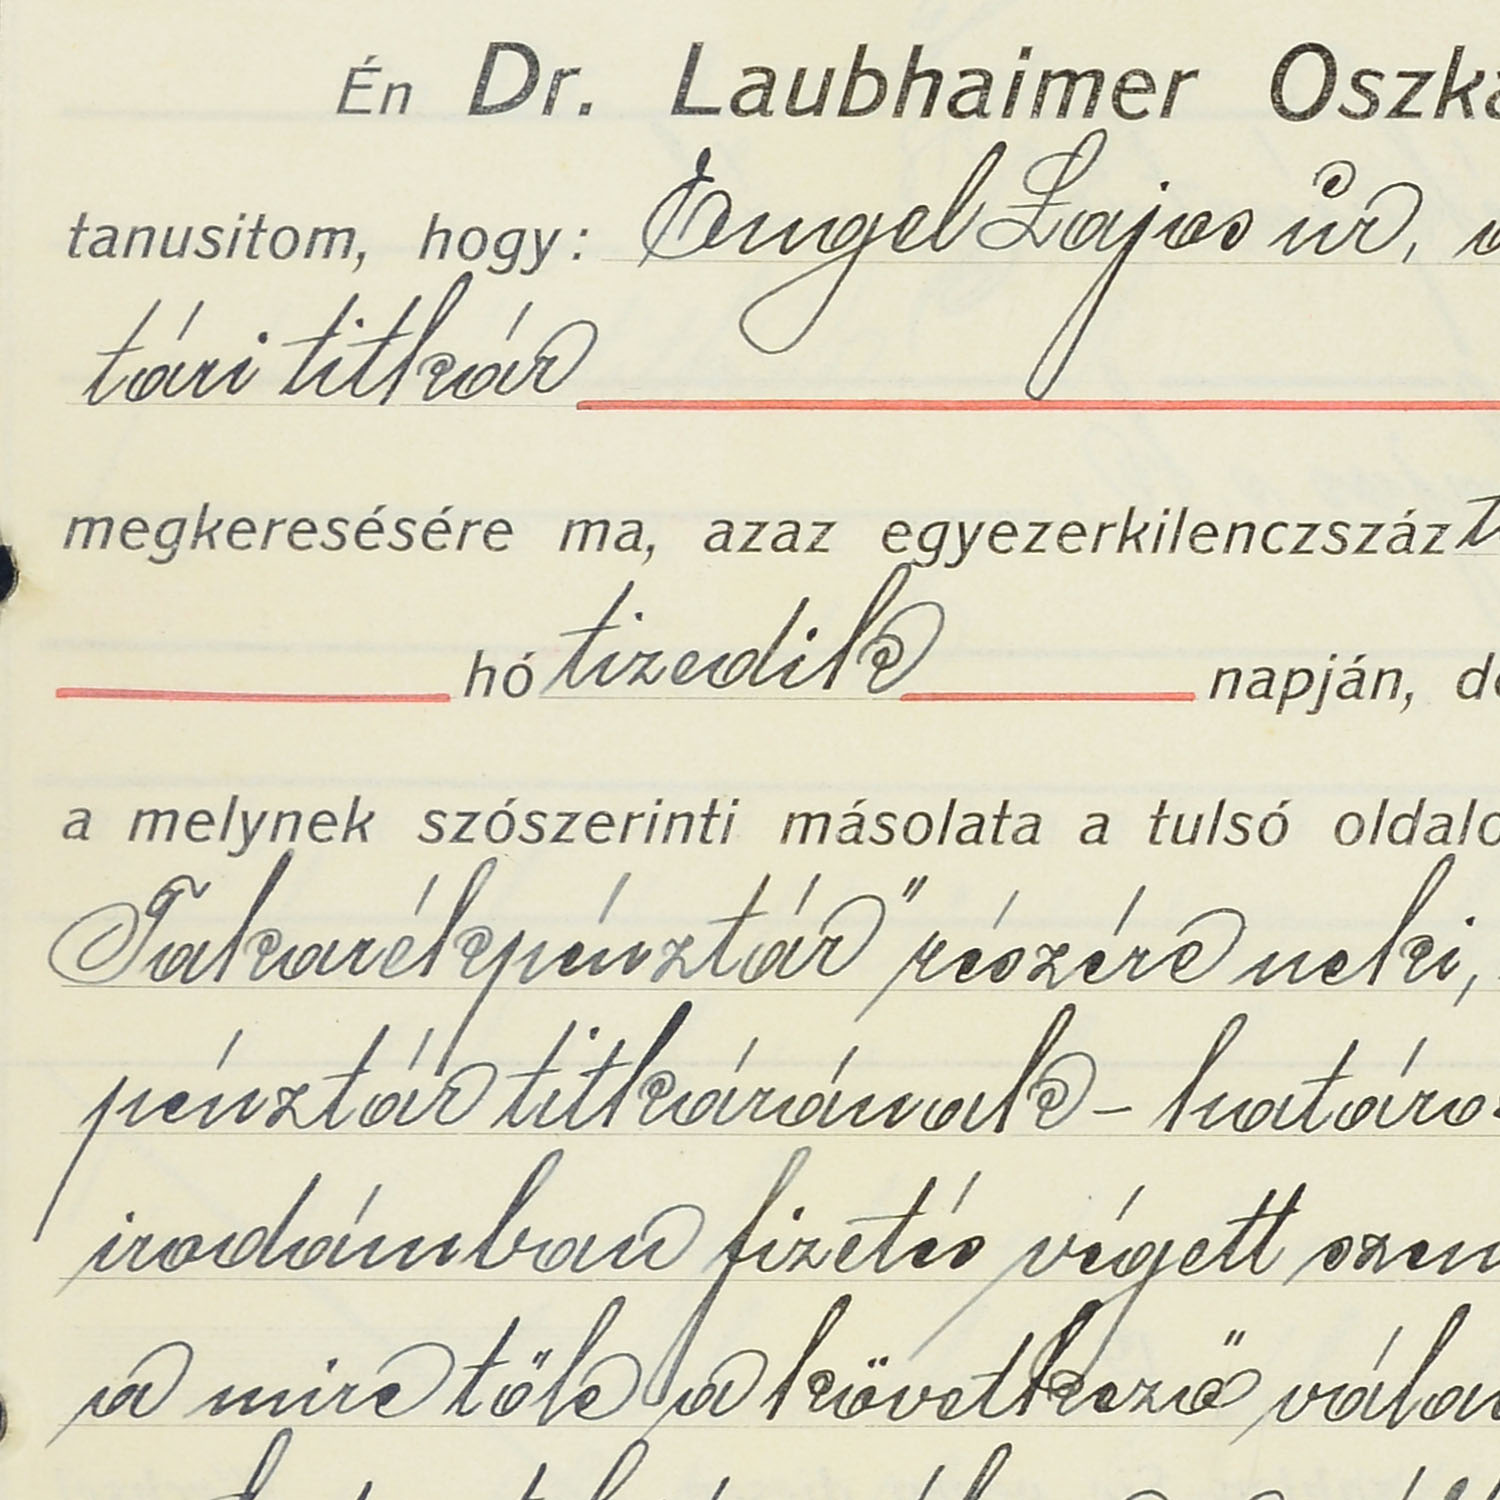 Én Dr. Laubhaimer Oszká
tanusitom, hogy: Engel Lajos úr,
tári titkár
megkeresésére ma, azaz egyezerkilenczszáz
hó tizedik napján, dé
a melynek szószerinti másolata a tulsó oldalo
Takarékpénztár" részére neki,
pénztár titkárának - határo-
irodámban fizetés végett szem
a mire tőle a következő válas